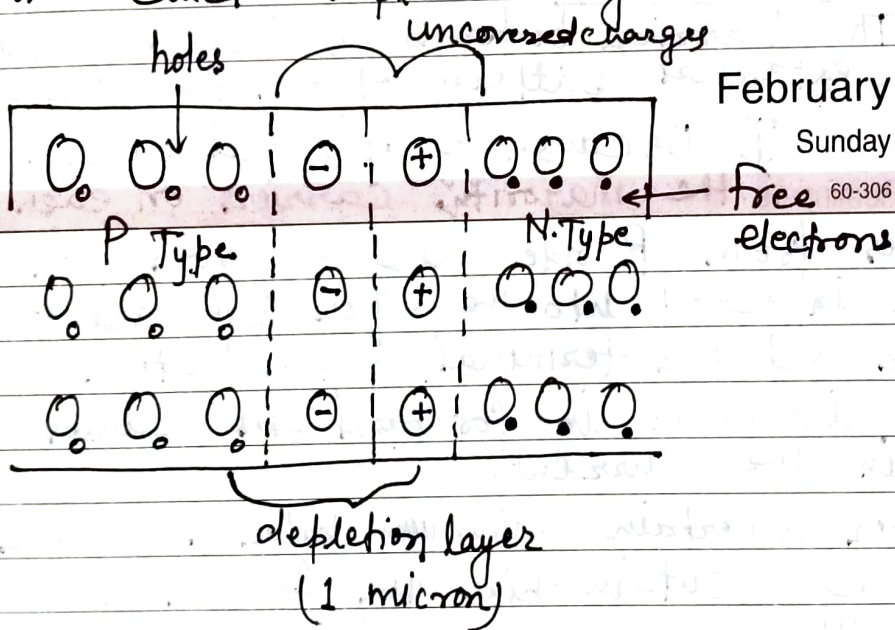 uncovered charges
holes
February
Sunday
60-306
− + 
free
electrons
P Type
N. Type
− +
− +
depletion layer
(1 micron)